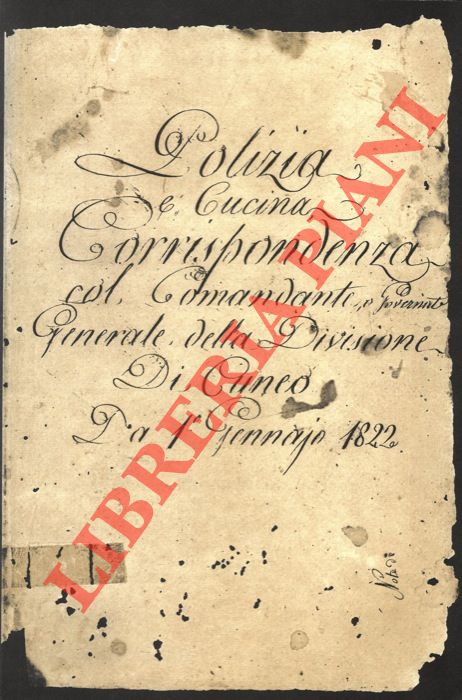 Polizia
e Cucina
Corrispondenza
col Comandante, o Governat.e
Generale della Divisione
Di Cuneo
Da 1° Gennajo 1822.
LIBRERIA PIANI